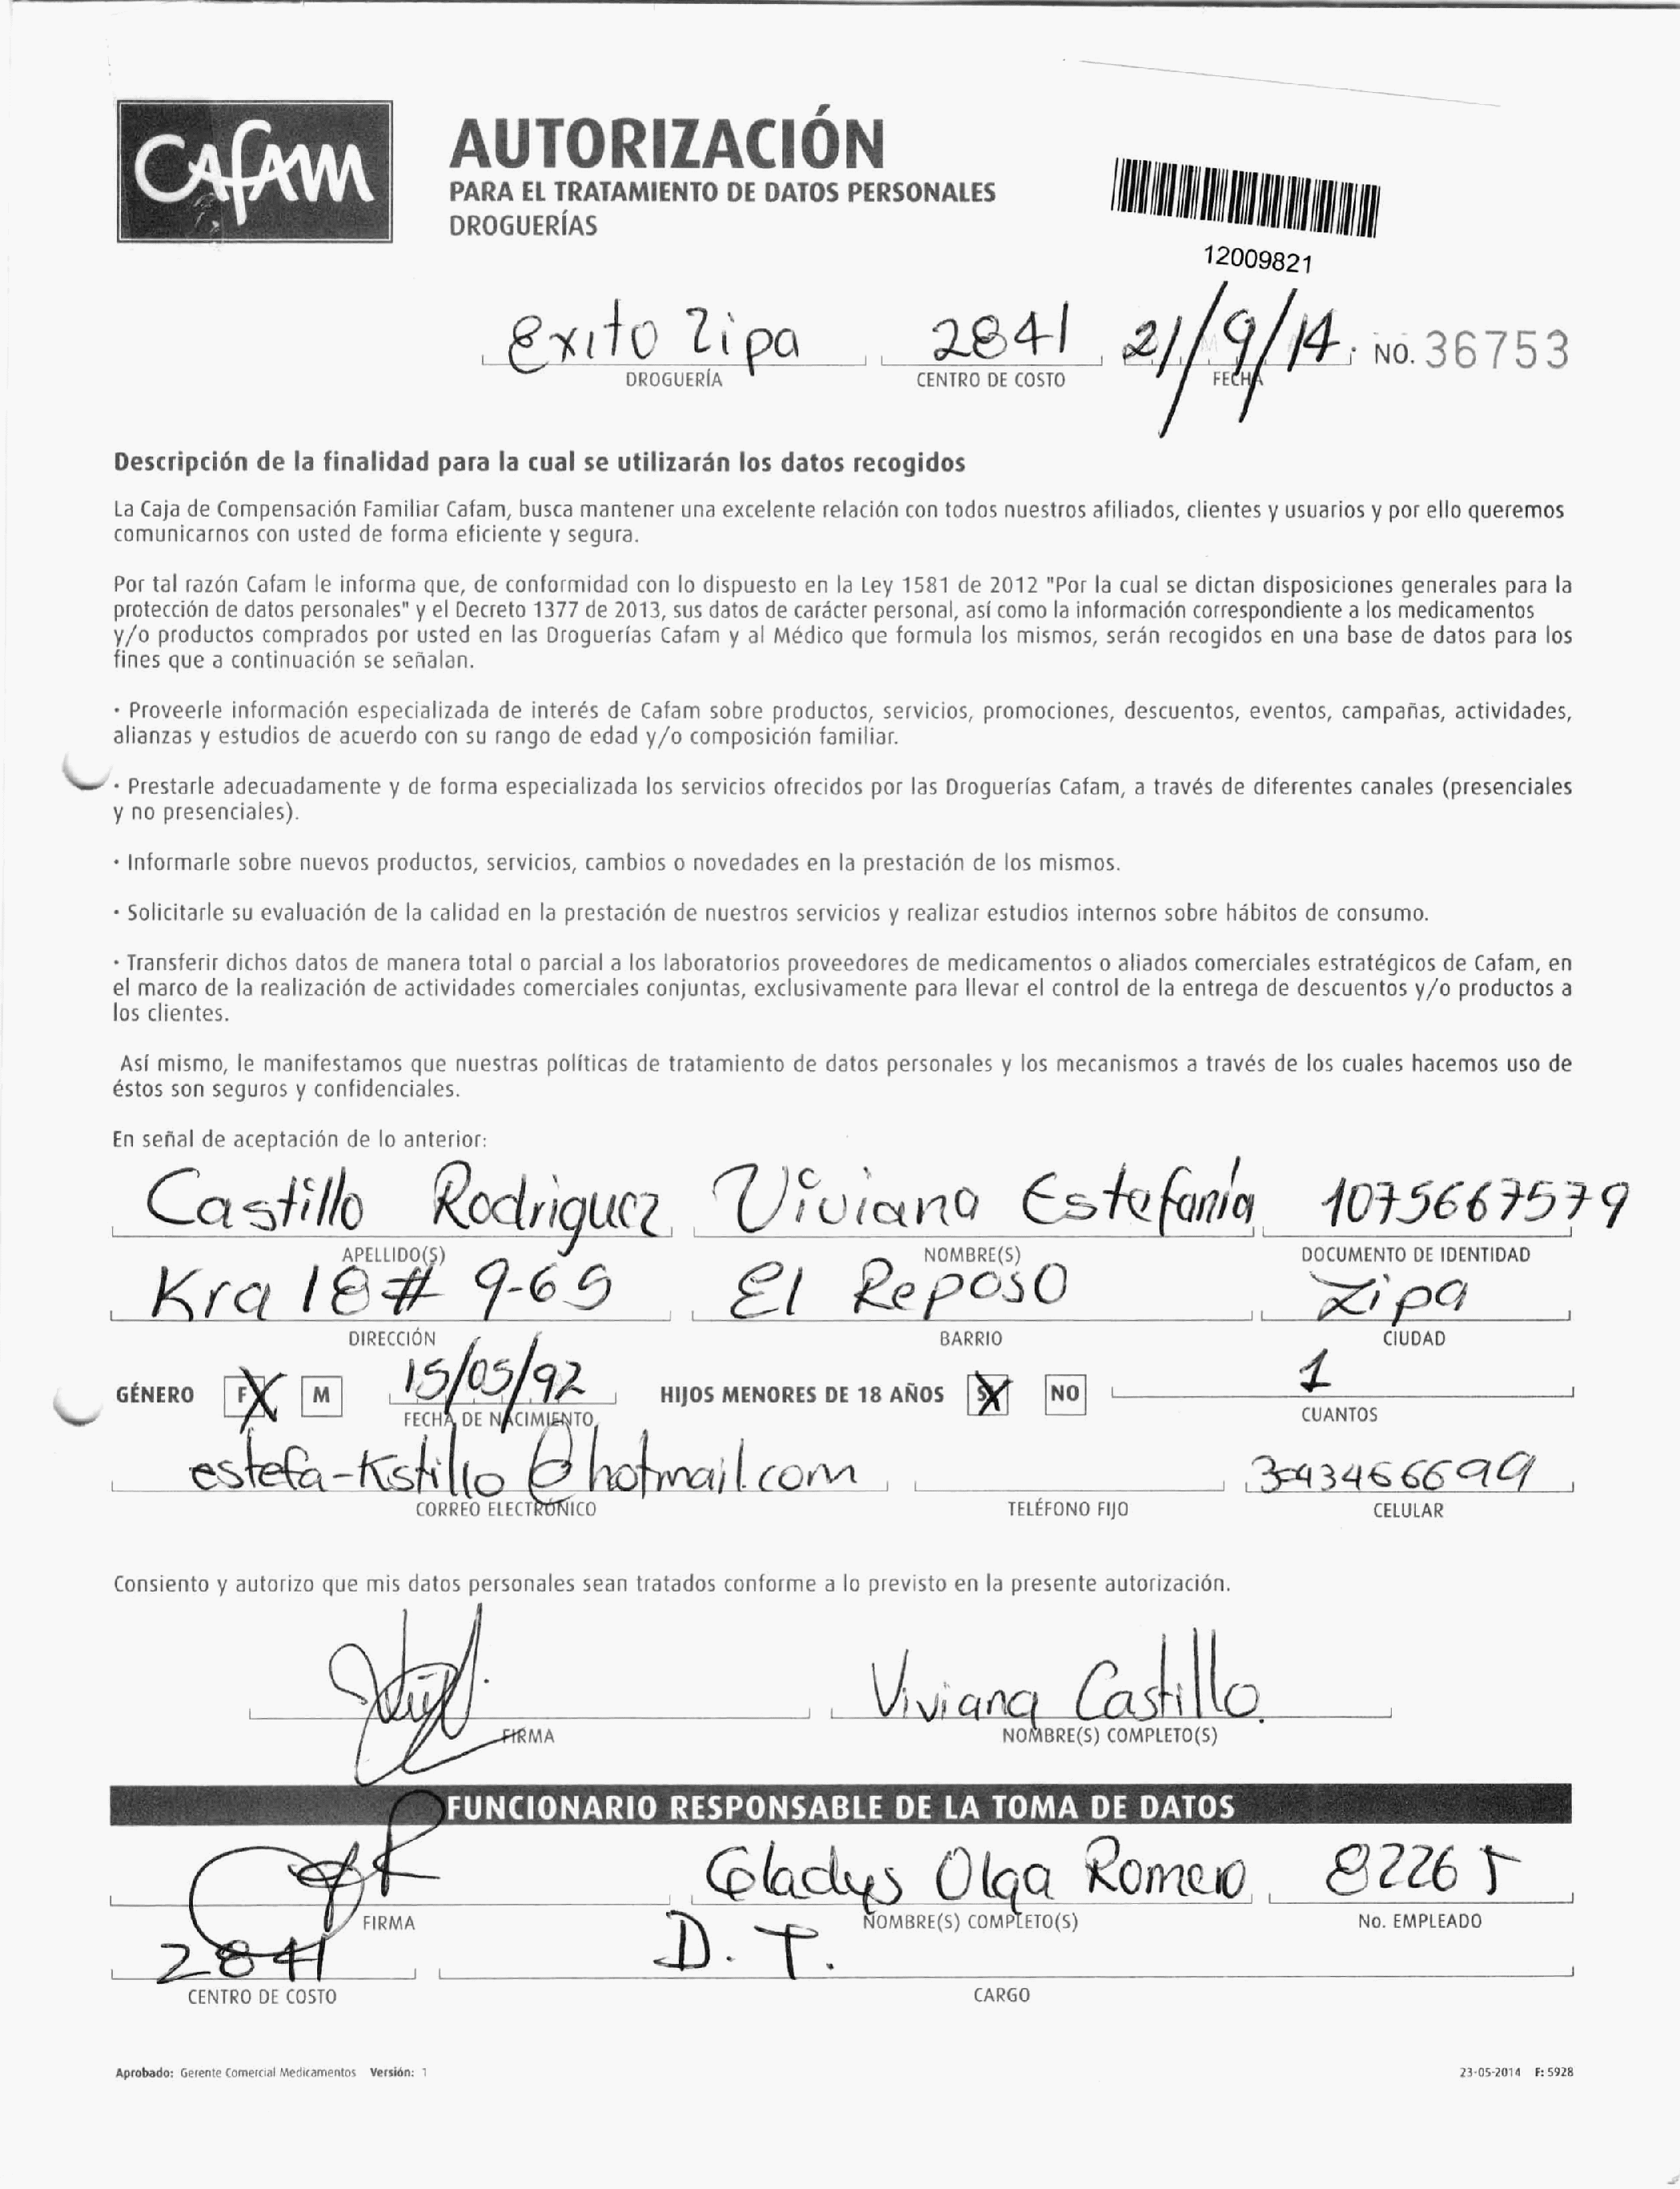 CAFAM
AUTORIZACIÓN
PARA EL TRATAMIENTO DE DATOS PERSONALES
DROGUERÍAS
12009821
Exito Zipa 2841 21/9/14 NO. 36753
DROGUERÍA CENTRO DE COSTO FECHA
Descripción de la finalidad para la cual se utilizarán los datos recogidos
La Caja de Compensación Familiar Cafam, busca mantener una excelente relación con todos nuestros afiliados, clientes y usuarios y por ello queremos
comunicarnos con usted de forma eficiente y segura.
Por tal razón Cafam le informa que, de conformidad con lo dispuesto en la Ley 1581 de 2012 "Por la cual se dictan disposiciones generales para la
protección de datos personales" y el Decreto 1377 de 2013, sus datos de carácter personal, así como la información correspondiente a los medicamentos
y/o productos comprados por usted en las Droguerías Cafam y al Médico que formula los mismos, serán recogidos en una base de datos para los
fines que a continuación se señalan.
· Proveerle información especializada de interés de Cafam sobre productos, servicios, promociones, descuentos, eventos, campañas, actividades,
alianzas y estudios de acuerdo con su rango de edad y/o composición familiar.
· Prestarle adecuadamente y de forma especializada los servicios ofrecidos por las Droguerías Cafam, a través de diferentes canales (presenciales
y no presenciales).
· Informarle sobre nuevos productos, servicios, cambios o novedades en la prestación de los mismos.
· Solicitarle su evaluación de la calidad en la prestación de nuestros servicios y realizar estudios internos sobre hábitos de consumo.
· Transferir dichos datos de manera total o parcial a los laboratorios proveedores de medicamentos o aliados comerciales estratégicos de Cafam, en
el marco de la realización de actividades comerciales conjuntas, exclusivamente para llevar el control de la entrega de descuentos y/o productos a
los clientes.
Así mismo, le manifestamos que nuestras políticas de tratamiento de datos personales y los mecanismos a través de los cuales hacemos uso de
éstos son seguros y confidenciales.
En señal de aceptación de lo anterior:
Castillo Rodriguez Viviana Estefanía 1075667579
APELLIDO(S) NOMBRE(S) DOCUMENTO DE IDENTIDAD
Kra 18 # 9-69 El Reposo Zipa
DIRECCIÓN BARRIO CIUDAD
GÉNERO F X M 15/05/92 HIJOS MENORES DE 18 AÑOS X NO 1
FECHA DE NACIMIENTO CUANTOS
estefa-Kstillo@hotmail.com
CORREO ELECTRÓNICO TELÉFONO FIJO CELULAR
Consiento y autorizo que mis datos personales sean tratados conforme a lo previsto en la presente autorización.
Viviana Castillo.
FIRMA NOMBRE(S) COMPLETO(S)
FUNCIONARIO RESPONSABLE DE LA TOMA DE DATOS
Gladys Olga Romero 82265
FIRMA NOMBRE(S) COMPLETO(S) No. EMPLEADO
2841 D. T.
CENTRO DE COSTO CARGO
Aprobado: Gerente Comercial Medicamentos Versión: 1 23-05-2014 F: 5928